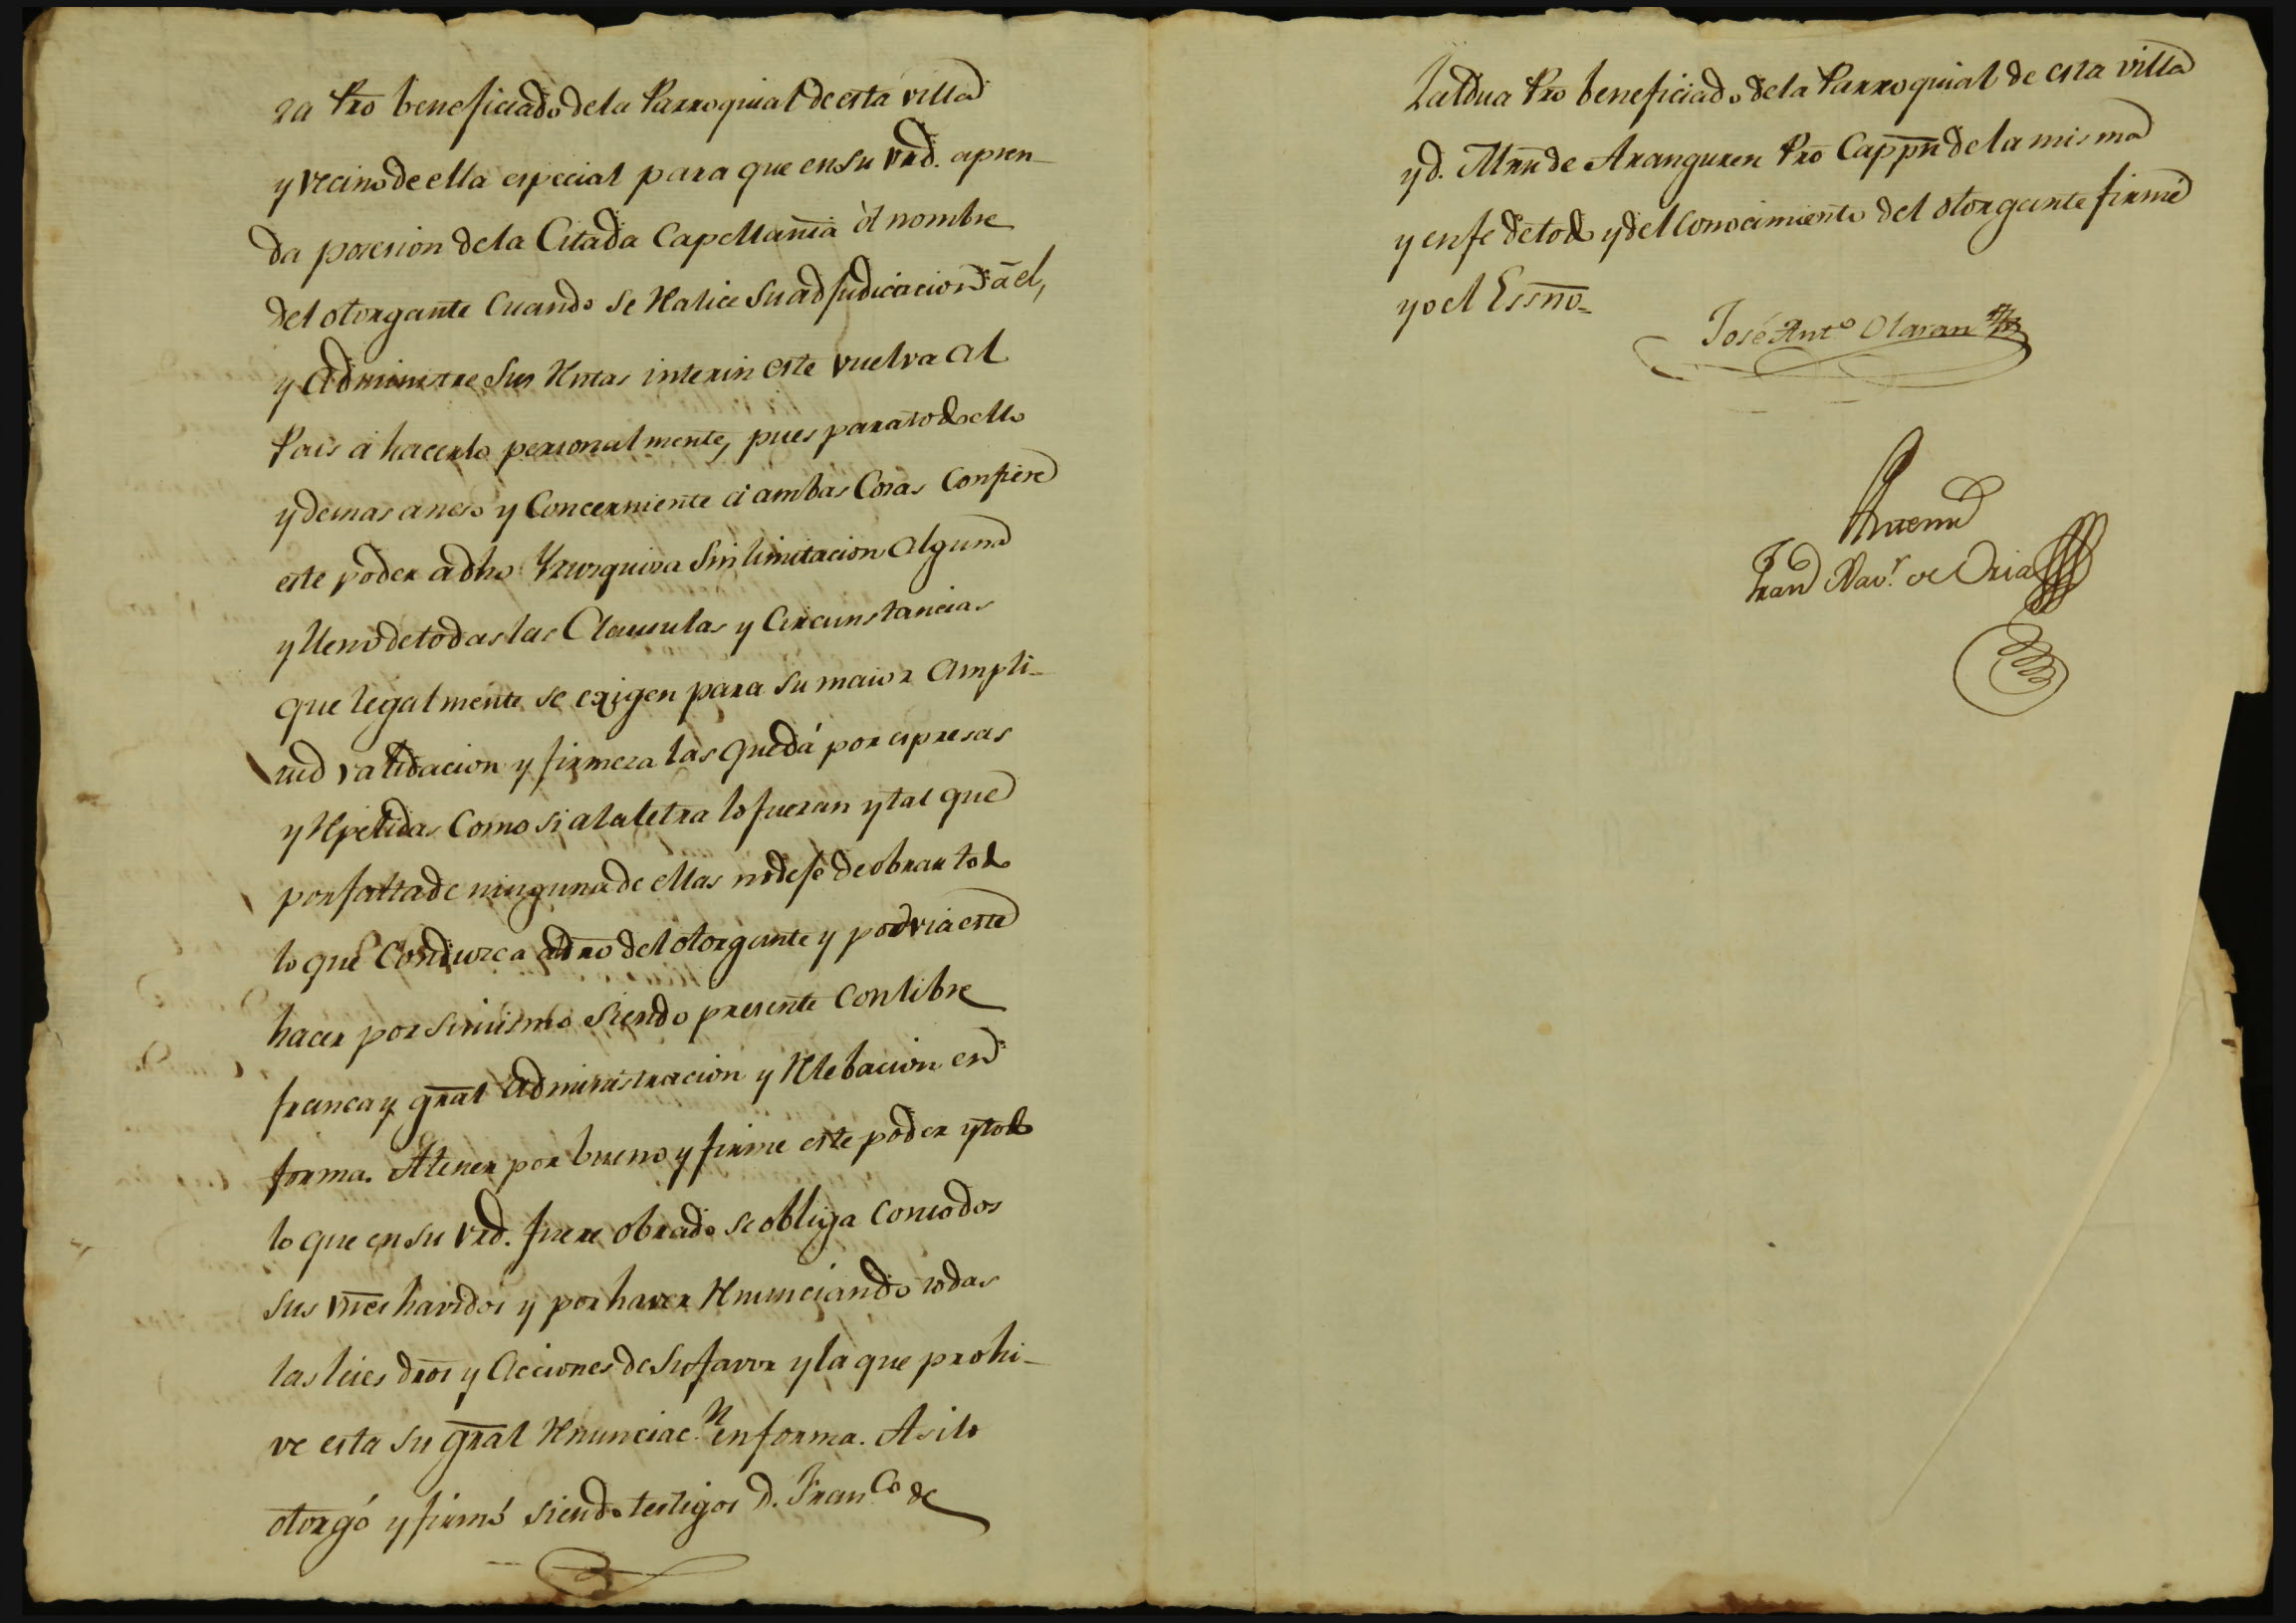 ra Pro beneficiado dela Parroquial de esta villa
y vecino de ella especial para que en su vrd. apren-
da posesion dela Citada Capellania à nombre
del otorgante Cuando se Realice su adjudicacion â el,
y administre sus Rentas interin este vuelva al
Pais á hacerlo personalmente, pues para todo ello
y demas anexo y Concerniente á ambas Cosas Confiere
este poder a dho Yrurquiza sin limitacion alguna
y lleno de todas las Clausulas y Circunstancias
que legalmente se exigen para su maior ampli-
tud validacion y firmeza las que dá por espresas
y Repetidas Como si ala letra lo fueran y tal que
por falta de ninguna de ellas no deje de obrar todo
lo que Conduzca al dro del otorgante y podria este
hacer por si mismo siendo presente Con libre
franca y gral administracion y Relebacion en
forma. A tener por bueno y firme este poder y todo
lo que en su vrd. fuere obrado se obliga con todos
sus vnes havidos y por haver Renunciando todas
las leies dros y acciones de su favor y la que prohi-
ve esta su gral Renunciacn en forma. Asi lo
otorgó y firmó siendo testigos D. Franco de
Zaldua Pro beneficiado dela Parroquial de esta villa
y d. Mrn de Aranguren Pro Cappn dela misma
y en fe de todo y del Conocimiento del otorgante firmé
yo el Essno=
José Anto Olaran
Antemi
Fran Xavr. de Oria